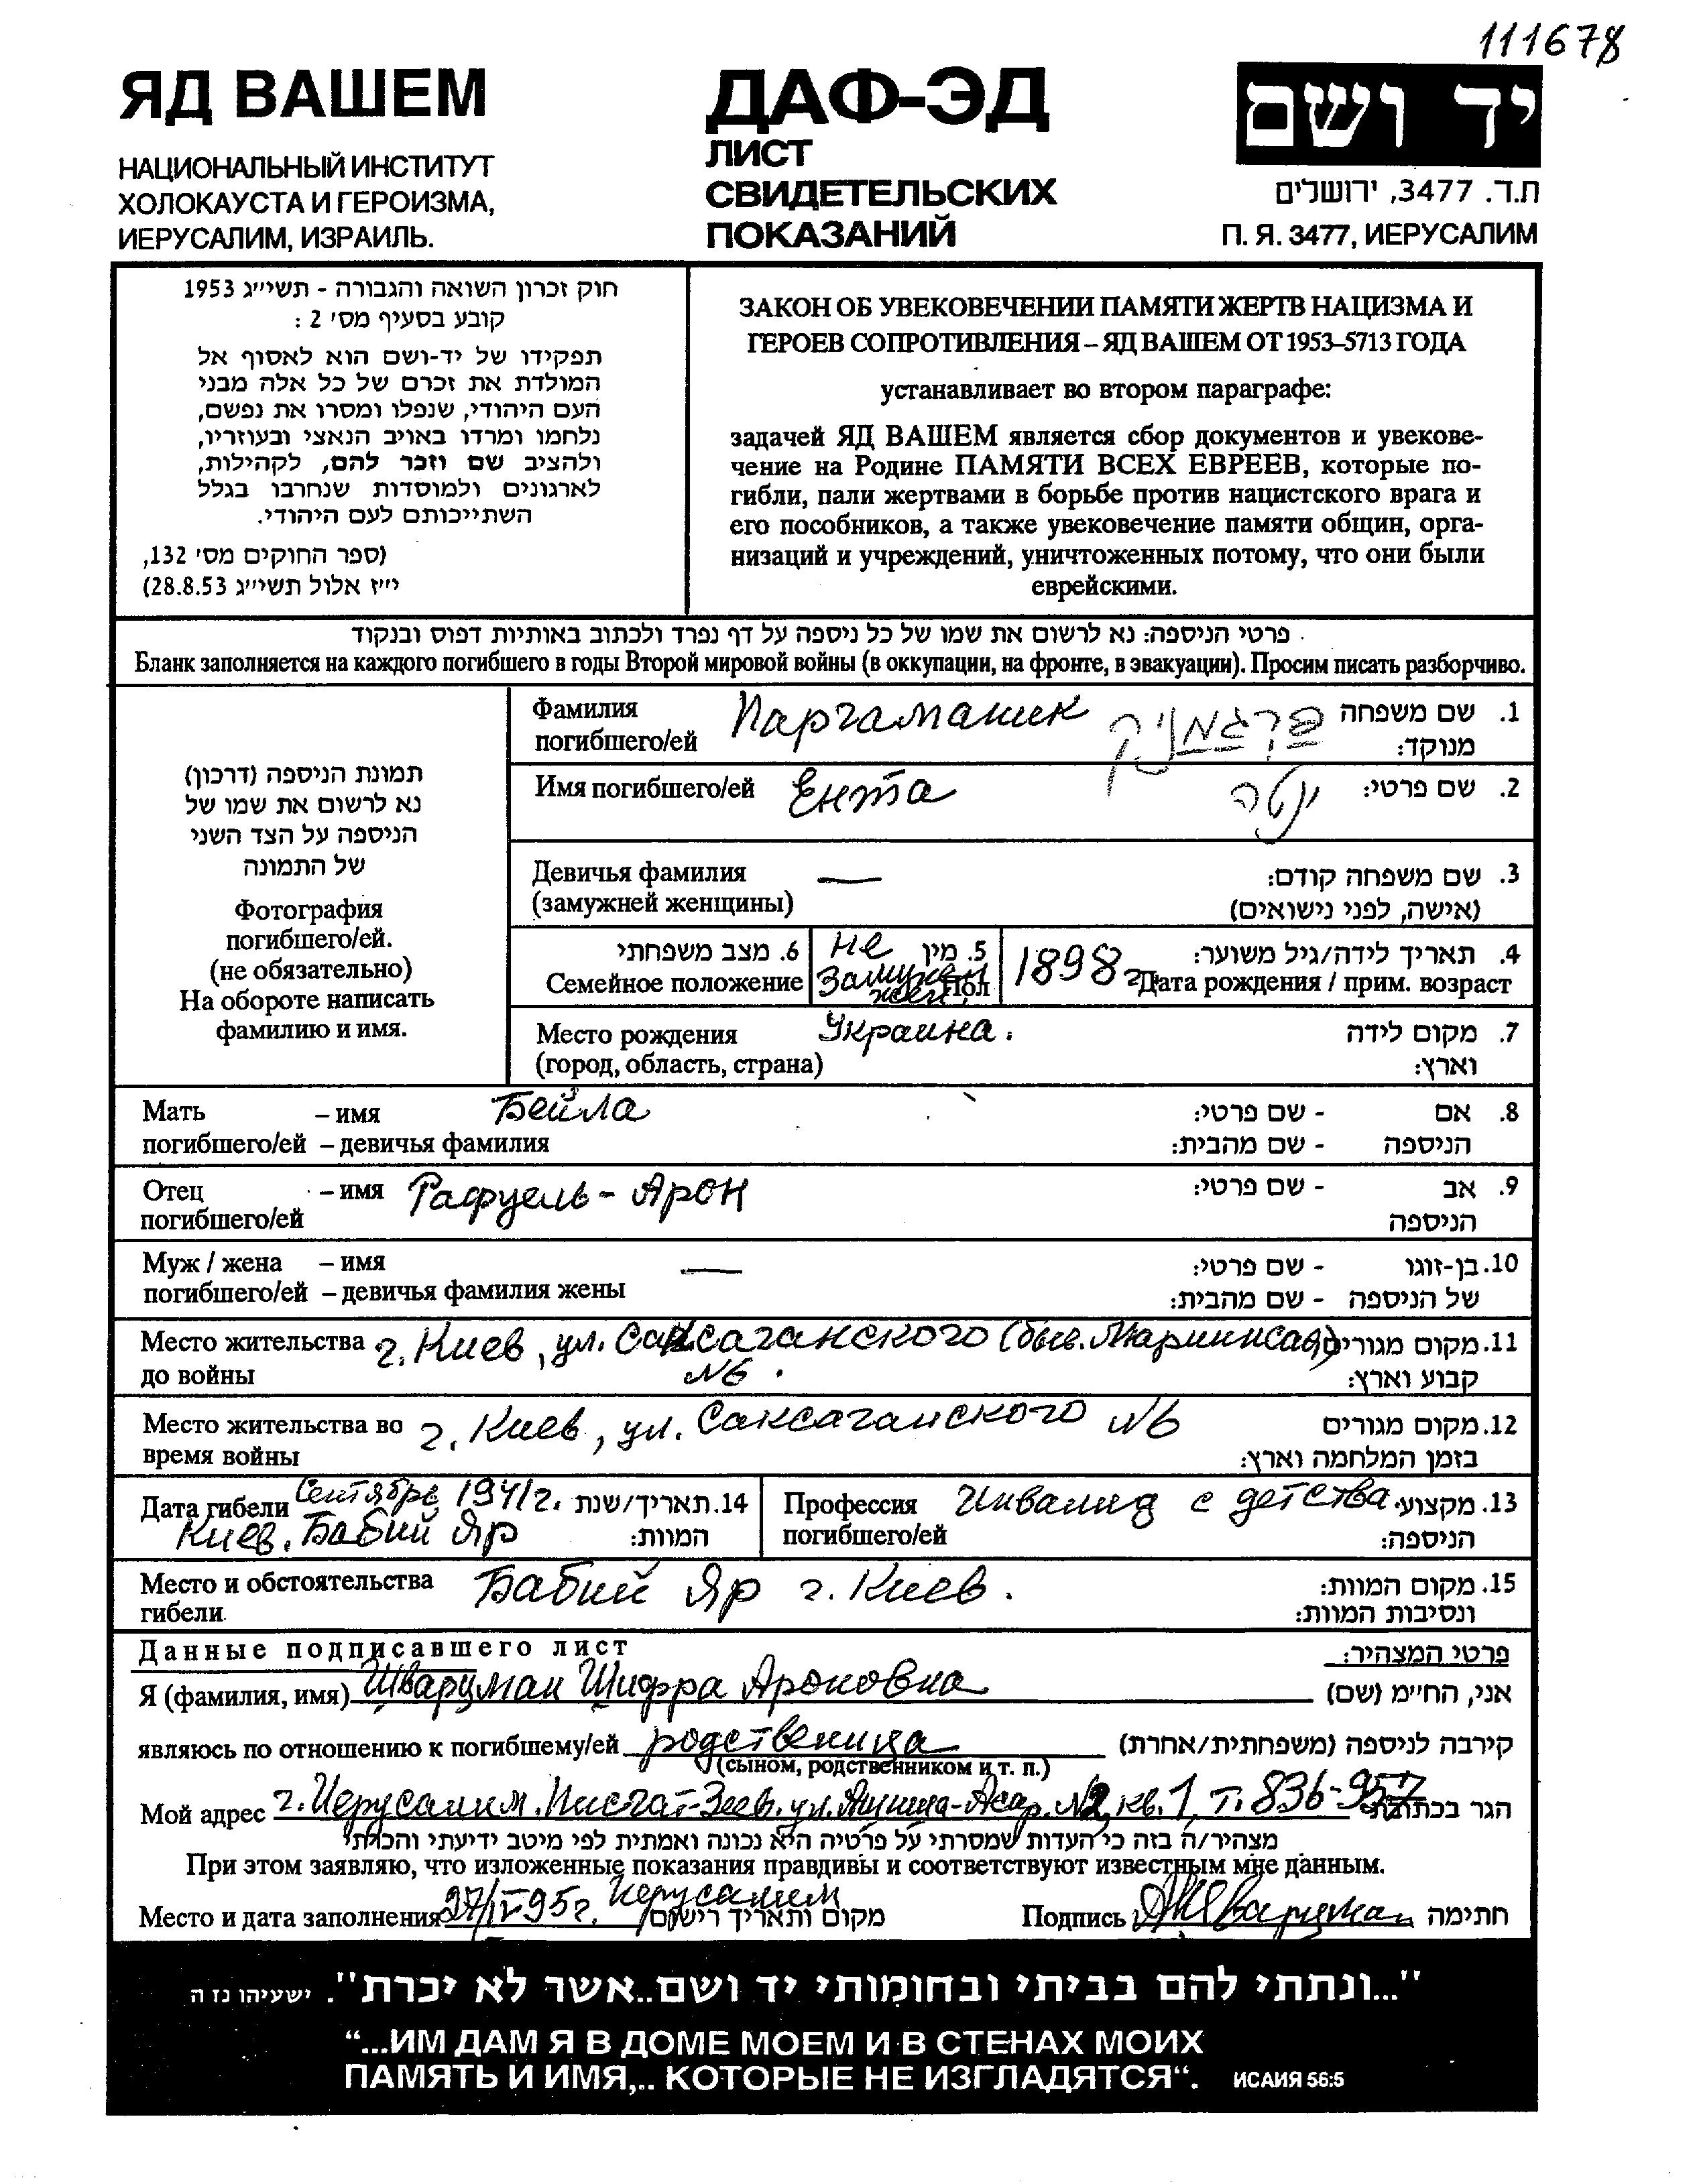 111678
ЯД ВАШЕМ
НАЦИОНАЛЬНЫЙ ИНСТИТУТ
ХОЛОКАУСТА И ГЕРОИЗМА,
ИЕРУСАЛИМ, ИЗРАИЛЬ.
ДАФ-ЭД
ЛИСТ
СВИДЕТЕЛЬСКИХ
ПОКАЗАНИЙ
יד ושם
ת.ד. 3477, ירושלים
П. Я. 3477, ИЕРУСАЛИМ
חוק זכרון השואה והגבורה - תשי״ג 1953
קובע בסעיף מס׳ 2 :
תפקידו של יד-ושם הוא לאסוף אל
המולדת את זכרם של כל אלה מבני
העם היהודי, שנפלו ומסרו את נפשם,
נלחמו ומרדו באויב הנאצי ובעוזריו,
ולהציב שם וזכר להם, לקהילות,
לארגונים ולמוסדות שנחרבו בגלל
השתייכותם לעם היהודי.
(ספר החוקים מס׳ 132,
י״ז אלול תשי״ג 28.8.53)
ЗАКОН ОБ УВЕКОВЕЧЕНИИ ПАМЯТИ ЖЕРТВ НАЦИЗМА И
ГЕРОЕВ СОПРОТИВЛЕНИЯ – ЯД ВАШЕМ ОТ 1953–5713 ГОДА
устанавливает во втором параграфе:
задачей ЯД ВАШЕМ является сбор документов и увекове-
чение на Родине ПАМЯТИ ВСЕХ ЕВРЕЕВ, которые по-
гибли, пали жертвами в борьбе против нацистского врага и
его пособников, а также увековечение памяти общин, орга-
низаций и учреждений, уничтоженных потому, что они были
еврейскими.
פרטי הניספה: נא לרשום את שמו של כל ניספה על דף נפרד ולכתוב באותיות דפוס ובנקוד
Бланк заполняется на каждого погибшего в годы Второй мировой войны (в оккупации, на фронте, в эвакуации). Просим писать разборчиво.
תמונת הניספה (דרכון)
נא לרשום את שמו של
הניספה על הצד השני
של התמונה
Фотография
погибшего/ей.
(не обязательно)
На обороте написать
фамилию и имя.
Фамилия Паргаманик פרגמניק 1. שם משפחה
погибшего/ей מנוקד:
Имя погибшего/ей Ента ינטה 2. שם פרטי:
Девичья фамилия — 3. שם משפחה קודם:
(замужней женщины) (אישה, לפני נישואים)
6. מצב משפחתי не 5. מין 1898 г 4. תאריך לידה/גיל משוער:
Семейное положение замужем жен. Пол Дата рождения / прим. возраст
Место рождения Украина. 7. מקום לידה
(город, область, страна) וארץ:
Мать – имя Бейла 8. אם - שם פרטי:
погибшего/ей – девичья фамилия הניספה - שם מהבית:
Отец – имя Рафуель-Арон 9. אב - שם פרטי:
погибшего/ей הניספה
Муж / жена – имя — 10. בן-זוגו - שם פרטי:
погибшего/ей – девичья фамилия жены של הניספה - שם מהבית:
Место жительства г. Киев, ул. Саксаганского (быв. Мариинская) 11. מקום מגורים
до войны №6. קבוע וארץ:
Место жительства во г. Киев, ул. Саксаганского №6 12. מקום מגורים
время войны בזמן המלחמה וארץ:
Дата гибели Сентябрь 1941 г. 14. תאריך/שנת
Киев. Бабий Яр המוות:
Профессия Инвалид с детства. 13. מקצוע
погибшего/ей הניספה:
Место и обстоятельства Бабий Яр г. Киев. 15. מקום המוות:
гибели ונסיבות המוות:
Данные подписавшего лист פרטי המצהיר:
Я (фамилия, имя) Шварцман Шифра Ароновна אני, החי״מ (שם)
являюсь по отношению к погибшему/ей родственица קירבה לניספה (משפחתית/אחרת)
(сыном, родственником и т. п.)
Мой адрес г. Иерусалим. Писгат-Зеев. ул. №2, кв. 1, т. 836-957 הגר בכתובת
מצהיר/ה בזה כי העדות שמסרתי על פרטיה היא נכונה ואמתית לפי מיטב ידיעתי והכרתי
При этом заявляю, что изложенные показания правдивы и соответствуют известным мне данным.
Место и дата заполнения 27/IV 95г. Иерусалим מקום ותאריך רישום Подпись Шварцман חתימה
"...ונתתי להם בביתי ובחומותי יד ושם..אשר לא יכרת". ישעיהו נו ה
“...ИМ ДАМ Я В ДОМЕ МОЕМ И В СТЕНАХ МОИХ
ПАМЯТЬ И ИМЯ,.. КОТОРЫЕ НЕ ИЗГЛАДЯТСЯ“. ИСАИЯ 56:5